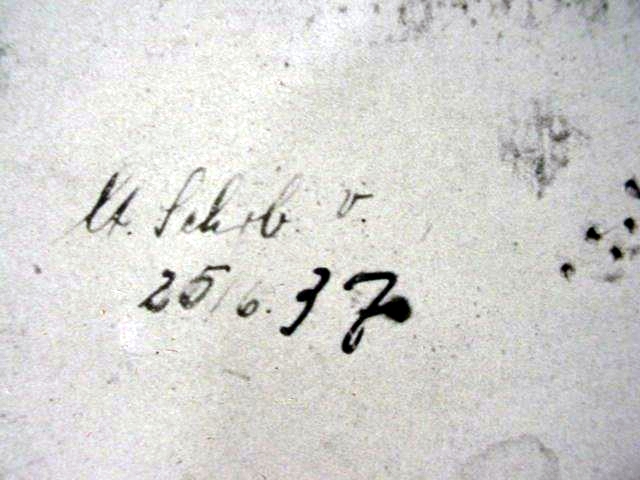 lt. Schrb. v.
25/6. 37